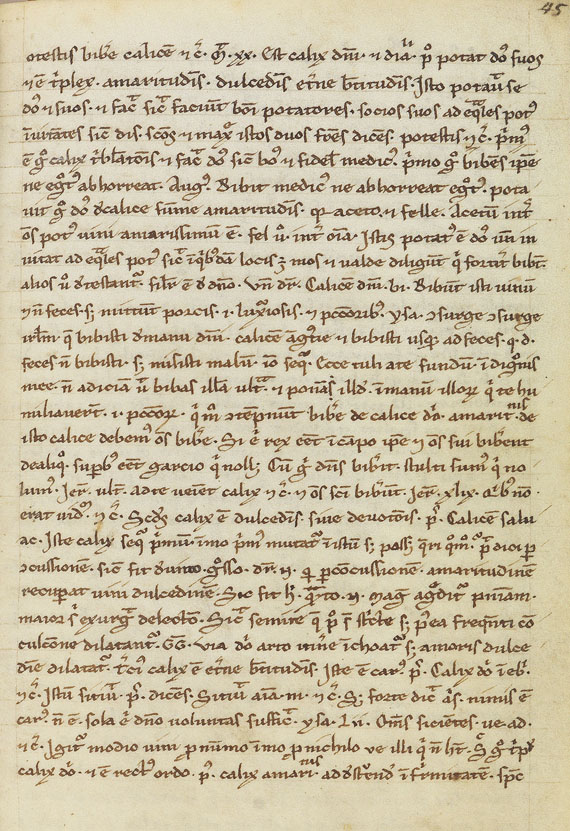 45
otestis bibe calicē ⁊ c̄. M͛. xx. Est calix dn̄i ⁊ dia p̄ potat do͛ suos
⁊ ē t͛plex. amaritudis. dulcedis et͛ne btitudis. Isto potau͛ se
do͛ ⁊ suos. ⁊ fac͛ sic͛ faciūt boni potatores. socios suos ad eq̄les pot͛
īuitātes sic dis. sc̄os ⁊ max͛ istos duos fr̄es dicēs. potestis ⁊ c̄. p͛m͛
ē g͛ calix t͛blat͛onis ⁊ fac͛ do͛ sic bo͛ ⁊ fidel͛ medic͛. p͛mo g͛ bibēs ip̄e
ne eg͛t͛ abhorreat. Aug͛. Bibit medic͛ ne abhorreat eg͛t͛. pota
uit g͛ do͛ de calice sūme amaritudis. q͛ aceto ⁊ felle. Acetū int͛
os̄ pot͛ uini amarissimū ē. fel u͛ int͛ oīa. Istis potat͛ ē do͛ un̄ in
uitat ad eq̄les pot͛ sic͛ ī q͛bdā locis ꝫ mos ⁊ ualde diligūt q͛ fortit͛ bibt̄
alios u͛ detestant͛. sil͛r ē de dn̄o. Vn̄ dr̄. Calicē dn̄i bi. Bibūt isti uinū
⁊ n̄ feces. sꝫ mittūt porcis .i. luxiosis ⁊ pc̄corib͛. ysa. ↄsurge ↄsurge
irl̄m q̄ bibisti de manu dn̄i calicē ⁊ bibisti usq̄ ad feces. q. d.
feces n̄ bibisti. sꝫ misisti malū. iō seq͛. Ecce tuli a te fundū ī dig͛onis
mee. n̄ adiciā ut bibas illū ult͛a ⁊ ponā illd̄. ī manū illorꝝ q͛ te hu
miliauerūt .i. pc̄corꝝ. q͛ m̄ ↄtēpnūt bibe de calice do͛. amaritnis. de
isto calice debem͛ os̄ bibe. Si e͛ rex eēt ī cāpo ip̄e ⁊ os̄ sui bibent
de aliq͛. supb͛ eēt garcio q͛ nollꝫ. Cū g͛ dn̄s bibit. stulti sum͛ q͛ no
lum͛. Ier͛. ult͛. ad te ueiet calix ⁊ c̄. ⁊ os̄ sc̄i bibūt. Ier͛. xlix. q͛b͛ no
erat uid͛. ⁊ c̄. Scd͛s calix ē dulcedis. siue deuotōnis. p̄. Calicē salu
ac. Iste calix seq͛ p͛mū. imo p͛m͛ mutat͛ ī istū sꝫ possꝫ q͛ri q͛m͛. p͛ dici p
ↄcussionē. sic fit de unto g͛sso. dr̄. n̄. q͛ p ↄcussionē. amaritudinē
recupat uini dulcedinē. Sic fit h͛. q͛to. n̄. mag͛ ag͛dit͛ pn̄iam.
maior s͛ exurg͛ delecto. Sic͛ semite q̄ p͛ s͛ st͛cte sꝫ p͛ea freq͛nti cō
culcōne dilatant͛. GG. uia do͛ arto itiñe īchoat͛ sꝫ amoris dulce
die dilatat͛. t͛ci͛ calix ē et͛ne btitudis. Iste ē car͛. p̄. Calix do͛ ī ebr̄.
⁊ c̄. Istū sitiu͛. p̄. dicēs. Sitiu͛ aīa. m. ⁊ c̄. Sꝫ forte dic͛ as̄. nimis ē
car͛. n̄ ē. sola e͛ dn̄o uoluntas suffic͛. ysa. ln̄. Om̄s sicietes. ue. ad.
⁊ c̄. Igit͛ modio uini p numo imo p nichilo ue illi q͛ n̄ ht̄. S͛ g͛ t͛plx͛
calix do͛. ⁊ ē rect͛ ordo. p̄. calix amarinis ad dest͛nd͛ ī firmitatē. spēc